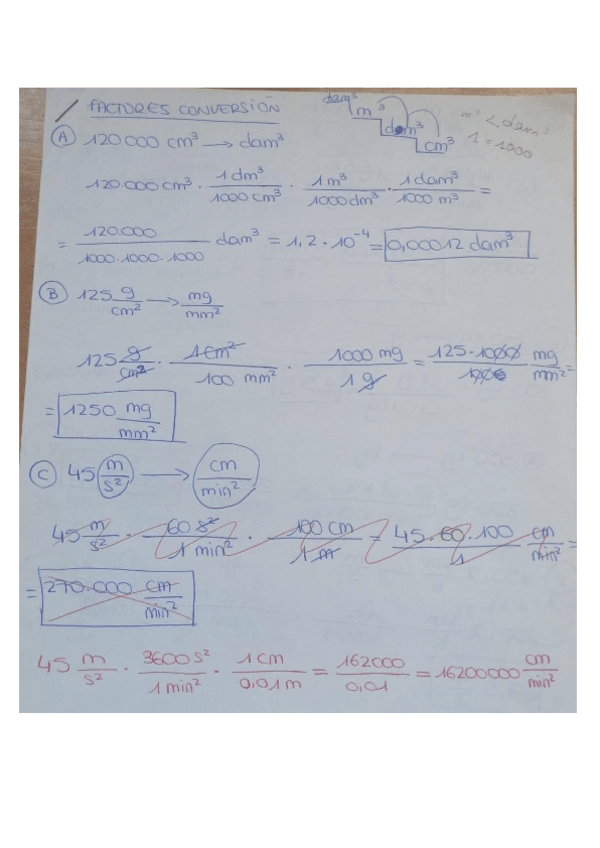 FACTORES CONVERSIÓN
dam³ m³ dm³ cm³
m³ < dam³
1 = 1000
A 120 000 cm³ → dam³
120.000 cm³ · 1 dm³/1000 cm³ · 1 m³/1000 dm³ · 1 dam³/1000 m³ =
= 120.000/1000·1000·1000 dam³ = 1,2 · 10⁻⁴ = 0,00012 dam³
B 125 g/cm² → mg/mm²
125 g/cm² · 1 cm²/100 mm² · 1000 mg/1 g = 125·1000/100 mg/mm² =
= 1250 mg/mm²
C 45 m/s² → cm/min²
45 m/s² · 60 s²/1 min² · 100 cm/1 m = 45·60·100/1 cm/min² =
= 270.000 cm/min²
45 m/s² · 3600 s²/1 min² · 1 cm/0,01 m = 162000/0,01 = 16200000 cm/min²